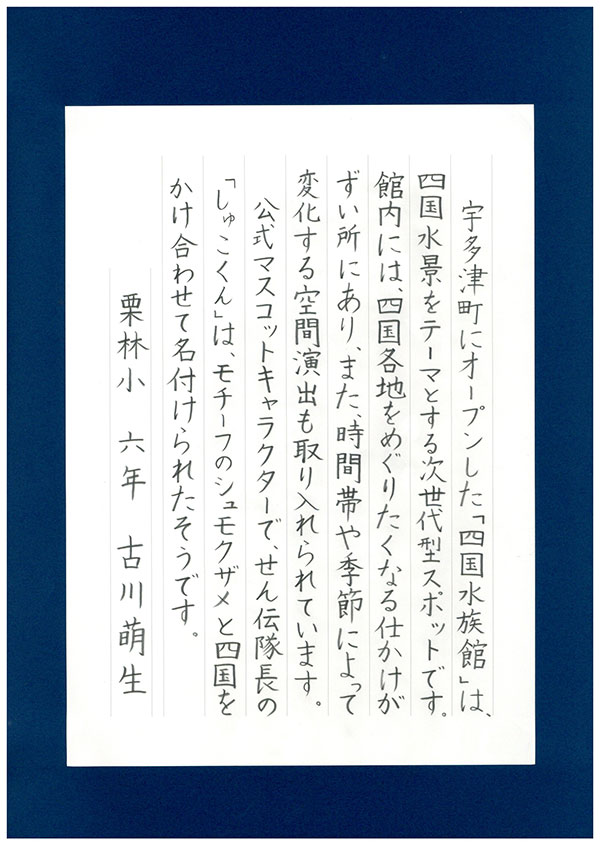 宇多津町にオープンした「四国水族館」は、
四国水景をテーマとする次世代型スポットです。
館内には、四国各地をめぐりたくなる仕かけが
ずい所にあり、また、時間帯や季節によって
変化する空間演出も取り入れられています。
公式マスコットキャラクターで、せん伝隊長の
「しゅこくん」は、モチーフのシュモクザメと四国を
かけ合わせて名付けられたそうです。
栗林小 六年 古川萌生